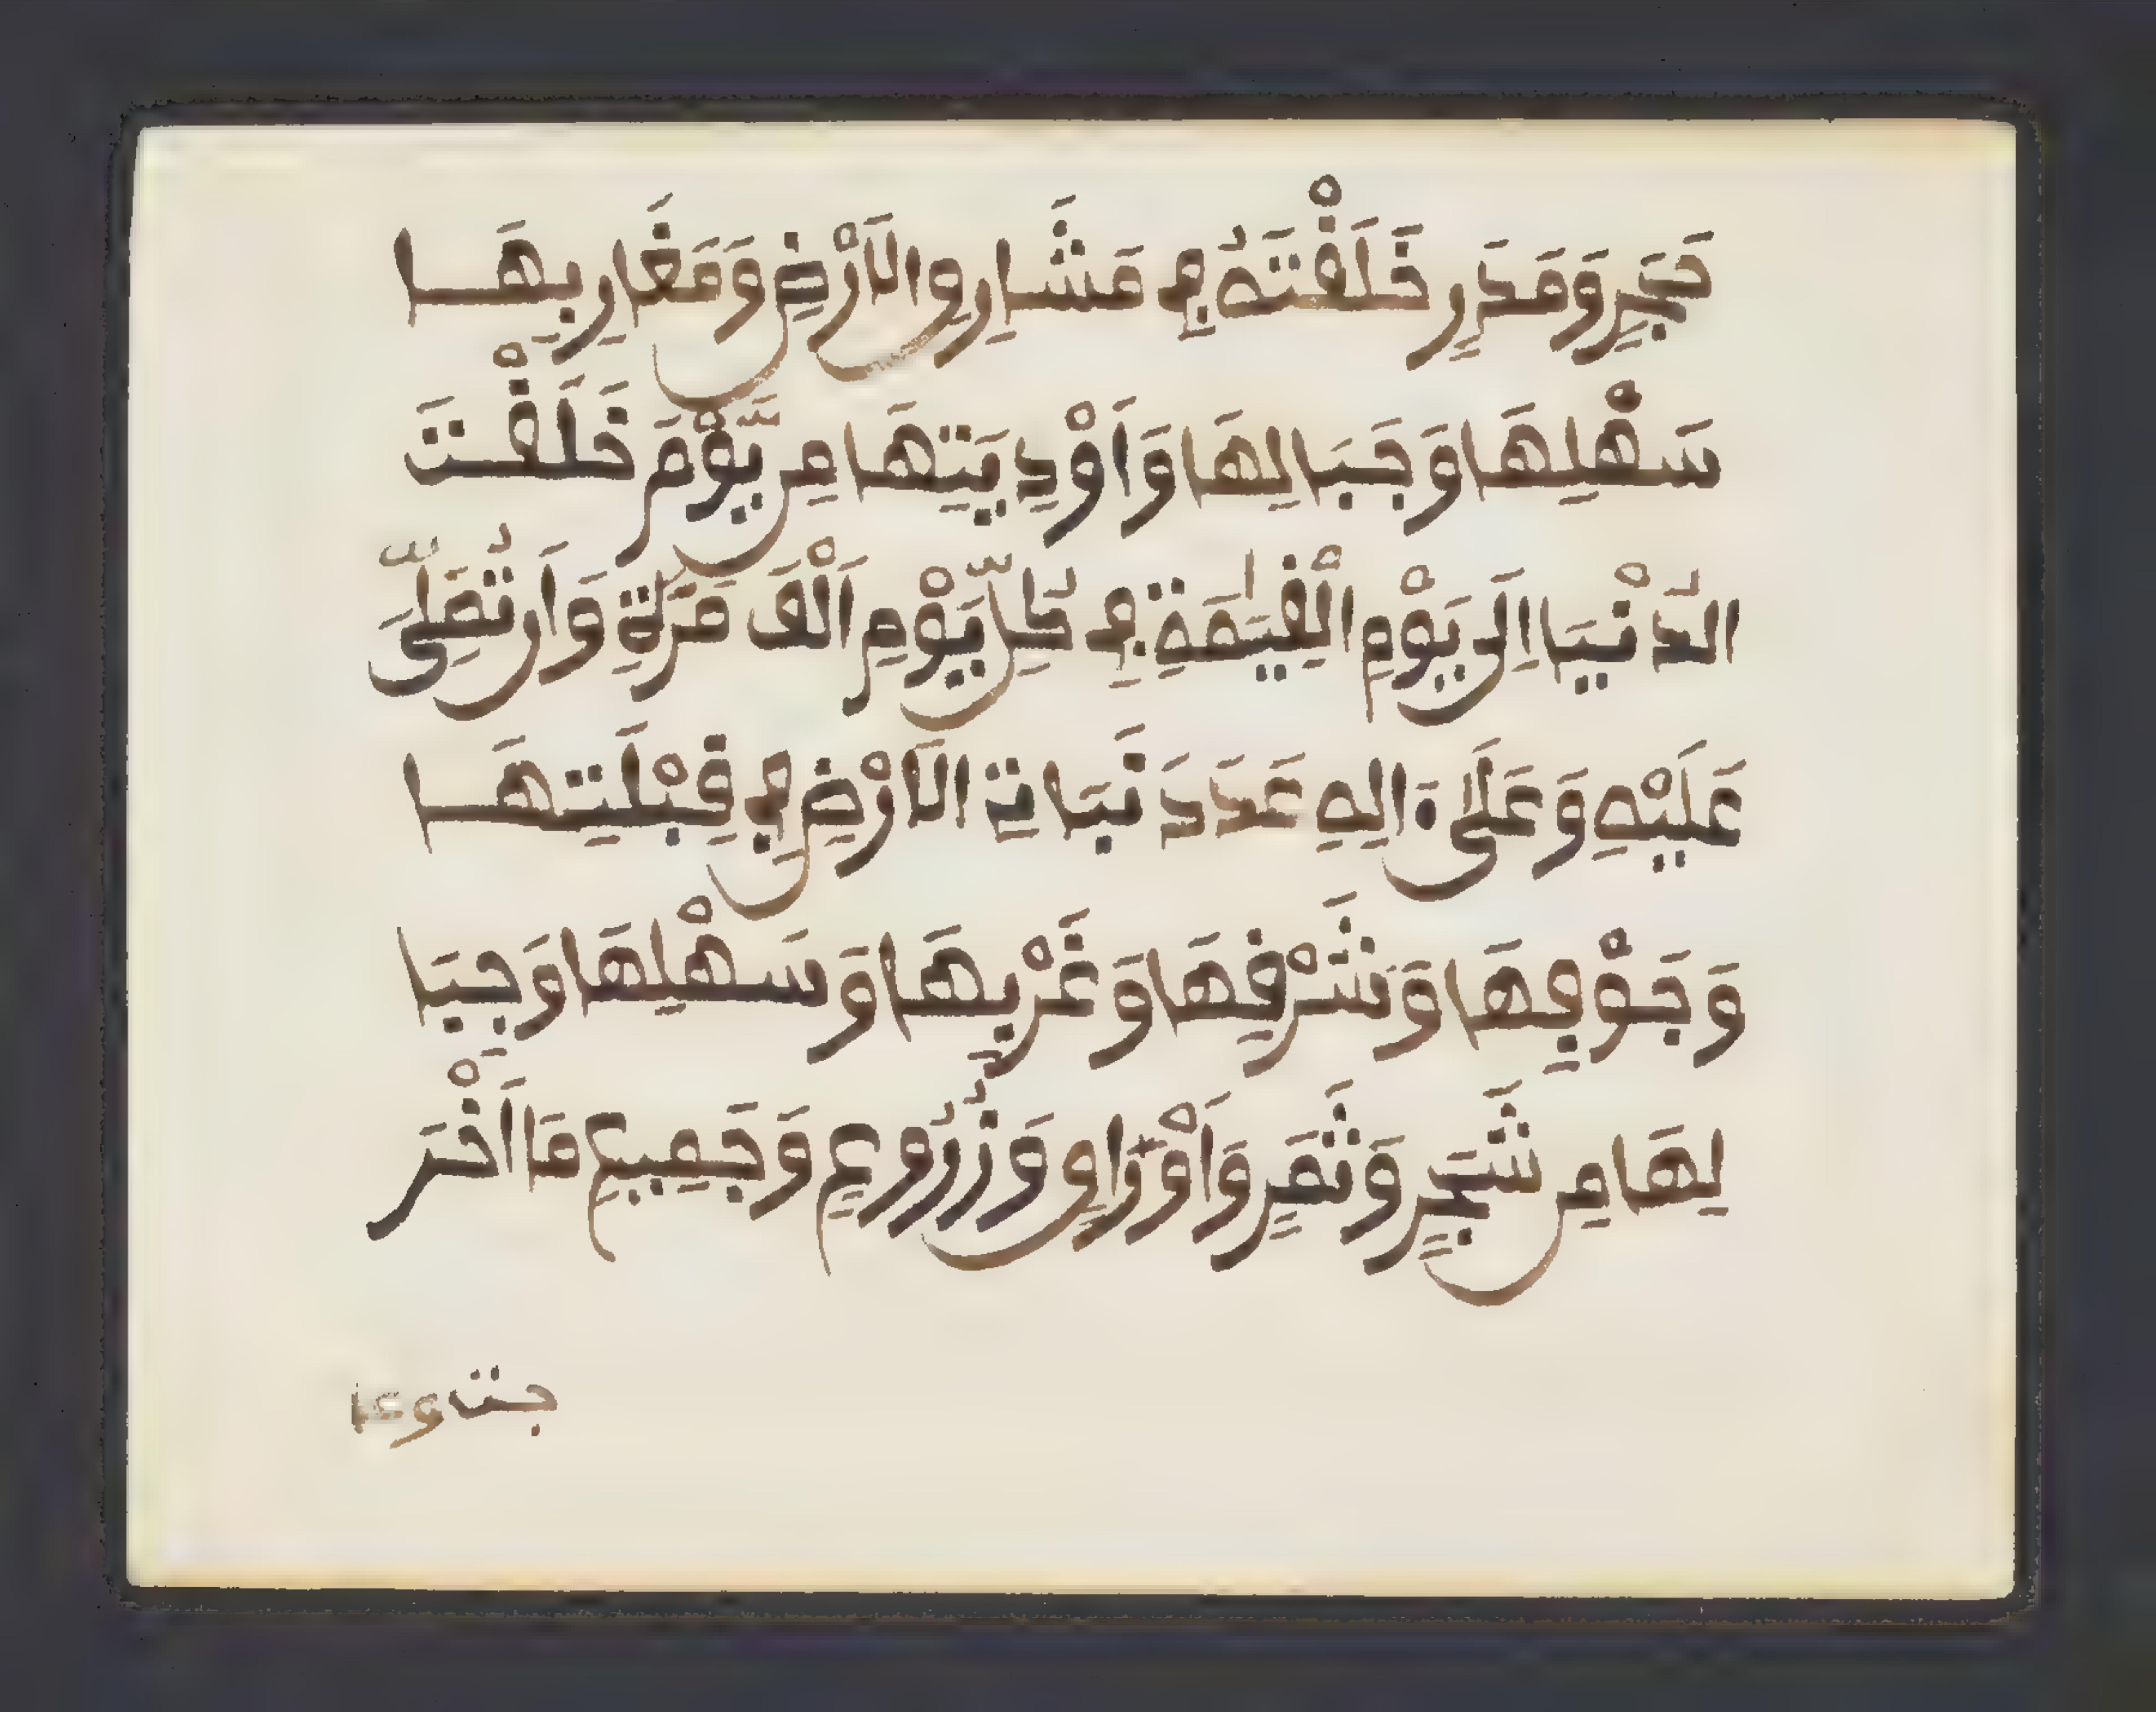 حَجَرٍ وَمَدَرٍ خَلَقْتَهُ فِي مَشَارِقِ الَارْضِ وَمَغَارِبِهَا
سَهْلِهَا وَجَبَالِهَا وَاَوْدِيَتِهَا مِن يَّوْمَ خَلَقْتَ
الدُّنْيَا اِلَى يَوْمِ الْقِيَمَةِ فِي كُلِّ يَوْمٍ اَلْفَ مَرَّةٍ وَاَن تُصَلِّيَ
عَلَيْهِ وَعَلَى ءَالِهِ عَدَدَ نَبَاتِ الَارْضِ فِي قِبْلَتِهَا
وَجَوْفِهَا وَشَرْقِهَا وَغَرْبِهَا وَسَهْلِهَا وَجِبَا
لِهَا مِن شَجَرٍ وَثَمَرٍ وَاَوْرَاقٍ وَزُرُوعٍ وَجَمِيعِ مَا اَخْرَ
جت